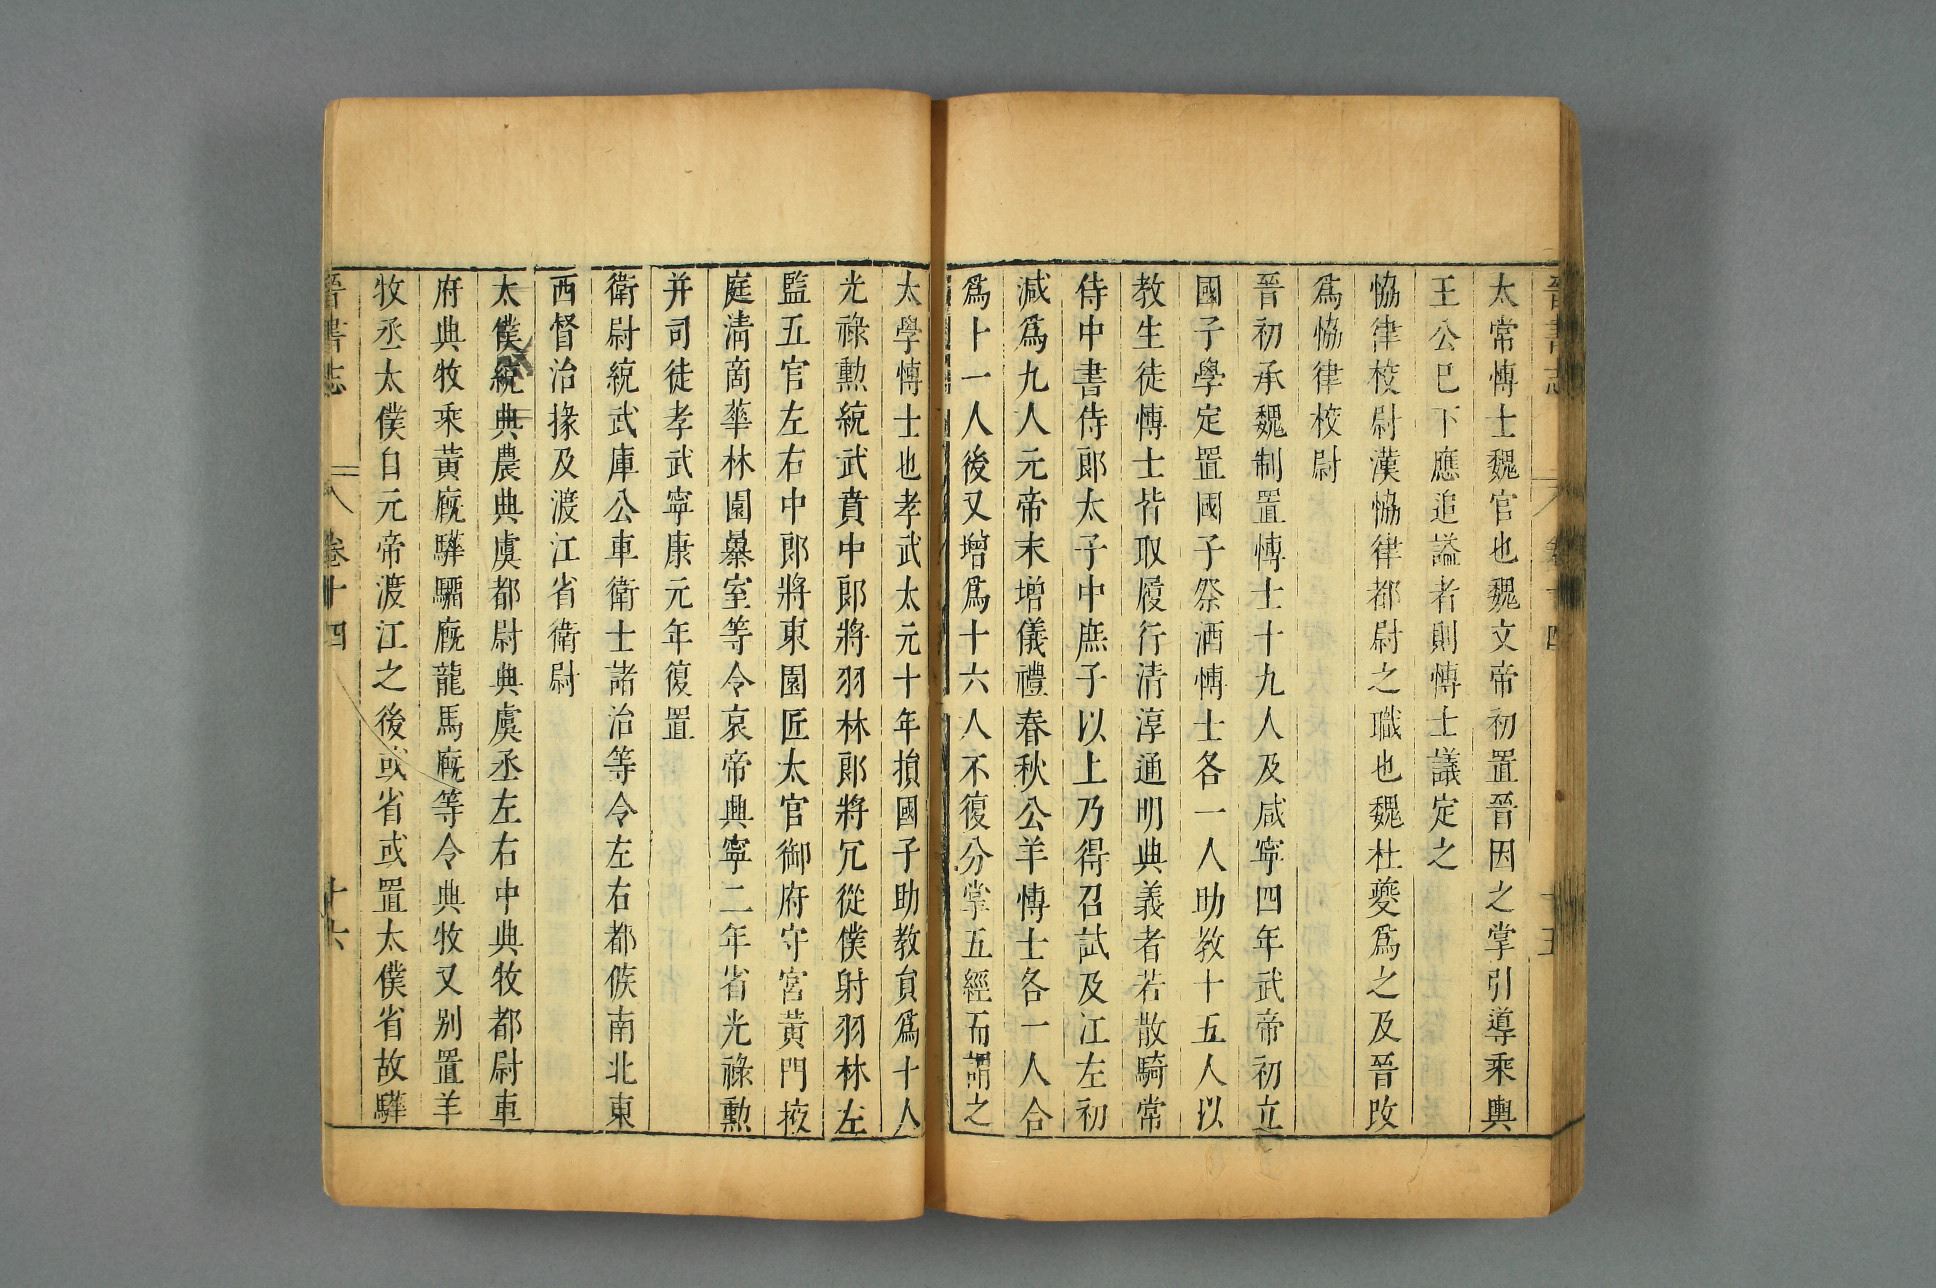 晉書志 卷十四 十五
太常博士魏官也魏文帝初置晉因之掌引導乘輿
王公已下應追謚者則博士議定之
恊律校尉漢恊律都尉之職也魏杜夔爲之及晉改
爲恊律校尉
晉初承魏制置博士十九人及咸寧四年武帝初立
國子學定置國子祭酒博士各一人助教十五人以
教生徒博士皆取履行清淳通明典義者若散騎常
侍中書侍郎太子中庶子以上乃得召試及江左初
減爲九人元帝末增儀禮春秋公羊博士各一人合
爲十一人後又增爲十六人不復分掌五經而謂之
太學博士也孝武太元十年損國子助教員爲十人
光祿勲統武賁中郎將羽林郎將冗從僕射羽林左
監五官左右中郎將東園匠太官御府守宮黃門掖
庭清商華林園㬥室等令哀帝興寧二年省光祿勲
并司徒孝武寧康元年復置
衛尉統武庫公車衛士諸冶等令左右都候南北東
西督冶掾及渡江省衛尉
太僕統典農典虞都尉典虞丞左右中典牧都尉車
府典牧乘黃廐驊騮廐龍馬廐等令典牧又别置羊
牧丞太僕自元帝渡江之後或省或置太僕省故驊
晉書志 卷十四 十六